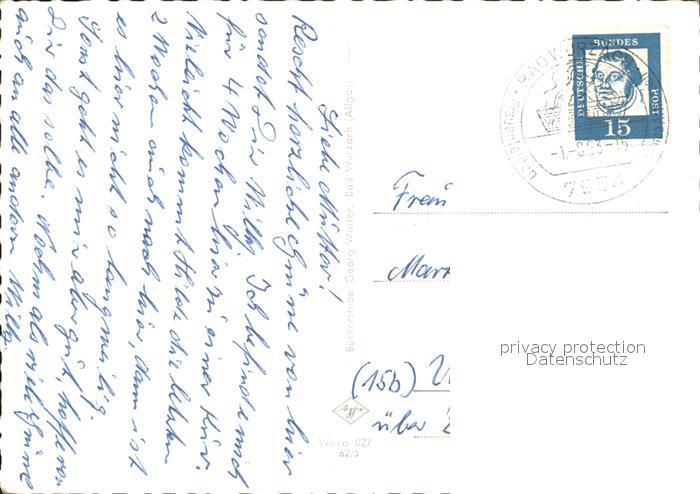 Liebe Mutter!
Recht herzliche Grüße von hier
sendet Dir Willy. Ich befinde mich
für 4 Wochen hier in einer Kur.
Vielleicht kommt Hilde die letzten
2 Wochen auch noch hier, dann ist
es hier nicht so langweilig.
Sonst geht es mir aber gut, hoffe von
Dir das selbe. Nochmals viele Grüße
auch an alle andern Willy
Bücherstube Georg Walter, Bad Wurzach (Allgäu)
Wuza 027
62/5
BAD WURZACH
7954
DEUTSCHE
BUNDES
POST
15
Frau
(15b)
über
privacy protection
Datenschutz